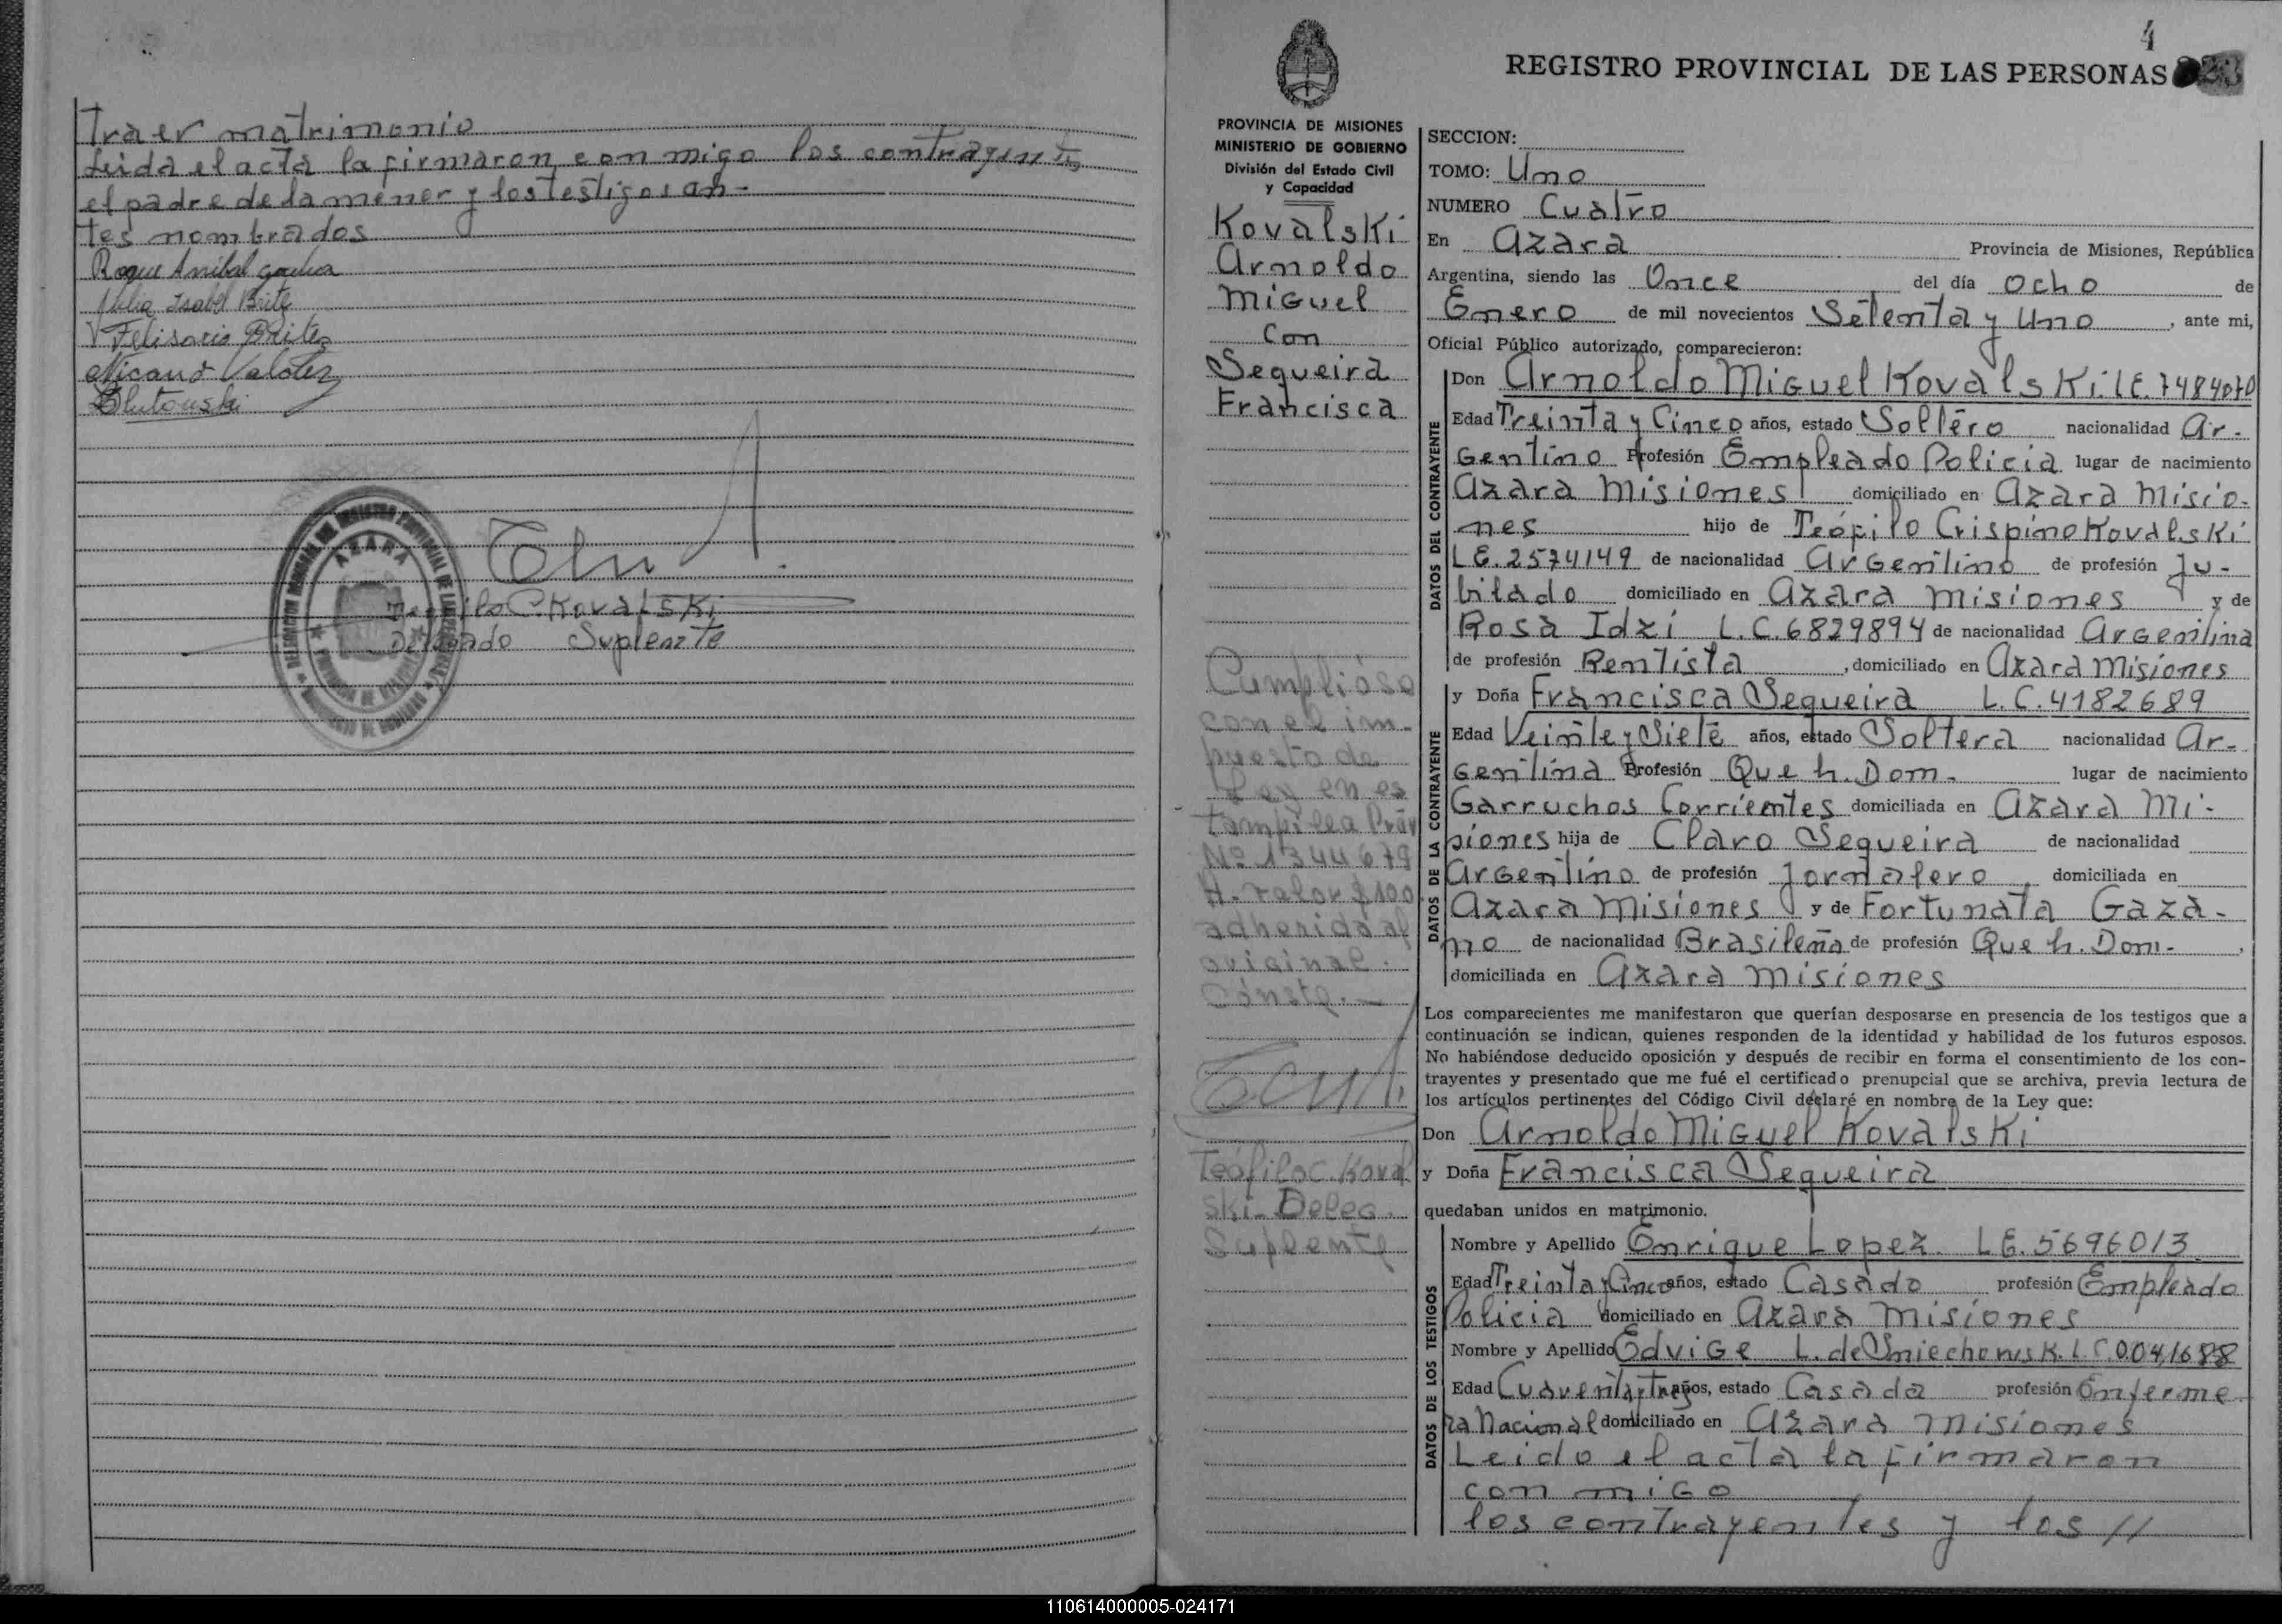 traer matrimonio
Leida el acta la firmaron con migo los contrayentes
el padre de la menor y los testigos an-
tes nombrados
Roque Anibal
Julia Isabel Brite
Felisario Britez
Nicano Valdez
Teofilo C. Kovalski
Delegado Suplente
AZARA
4
REGISTRO PROVINCIAL DE LAS PERSONAS
PROVINCIA DE MISIONES
MINISTERIO DE GOBIERNO
División del Estado Civil
y Capacidad
Kovalski
Arnoldo
Miguel
Con
Sequeira
Francisca
Cumplióse
con el im-
puesto de
Ley en es
tampilla Prov
Nº 1344679
A. valor $100
adherida al
original.
Consta.-
Teófilo C. Koval
ski- Deleg.
Suplente
SECCION:
TOMO: Uno
NUMERO Cuatro
En Azara Provincia de Misiones, República
Argentina, siendo las Once del día Ocho de
Enero de mil novecientos Setenta y Uno, ante mi,
Oficial Público autorizado, comparecieron:
DATOS DEL CONTRAYENTE
Don Arnoldo Miguel Kovalski. LE. 7484070
Edad Treinta y Cinco años, estado Soltero nacionalidad Ar-
gentino Profesión Empleado Policia lugar de nacimiento
Azara Misiones domiciliado en Azara Misio-
nes hijo de Teófilo Crispino Kovalski
LE. 2574149 de nacionalidad Argentino de profesión Ju-
bilado domiciliado en Azara Misiones y de
Rosa Idzi L.C. 6829894 de nacionalidad Argentina
de profesión Rentista, domiciliado en Azara Misiones
DATOS DE LA CONTRAYENTE
y Doña Francisca Sequeira L.C. 4182689
Edad Veinte y Siete años, estado Soltera nacionalidad Ar-
gentina Profesión Que h. Dom. lugar de nacimiento
Garruchos Corrientes domiciliada en Azara Mi-
siones hija de Claro Sequeira de nacionalidad
Argentino de profesión Jornalero domiciliada en
Azara Misiones y de Fortunata Gaza-
no de nacionalidad Brasileña de profesión Que h. Dom-,
domiciliada en Azara Misiones
Los comparecientes me manifestaron que querían desposarse en presencia de los testigos que a
continuación se indican, quienes responden de la identidad y habilidad de los futuros esposos.
No habiéndose deducido oposición y después de recibir en forma el consentimiento de los con-
trayentes y presentado que me fué el certificado prenupcial que se archiva, previa lectura de
los artículos pertinentes del Código Civil declaré en nombre de la Ley que:
Don Arnoldo Miguel Kovalski
y Doña Francisca Sequeira
quedaban unidos en matrimonio.
DATOS DE LOS TESTIGOS
Nombre y Apellido Enrique Lopez. LE. 5696013
Edad Treinta y Cinco años, estado Casado profesión Empleado
Policia domiciliado en Azara Misiones
Nombre y Apellido Edvige L. de Sniechowsk. L.C. 0041688
Edad Cuarenta y Tres años, estado Casada profesión Enferme
ra Nacional domiciliado en Azara Misiones
Leido el acta la firmaron
con migo
los contrayentes y los //
110614000005-024171